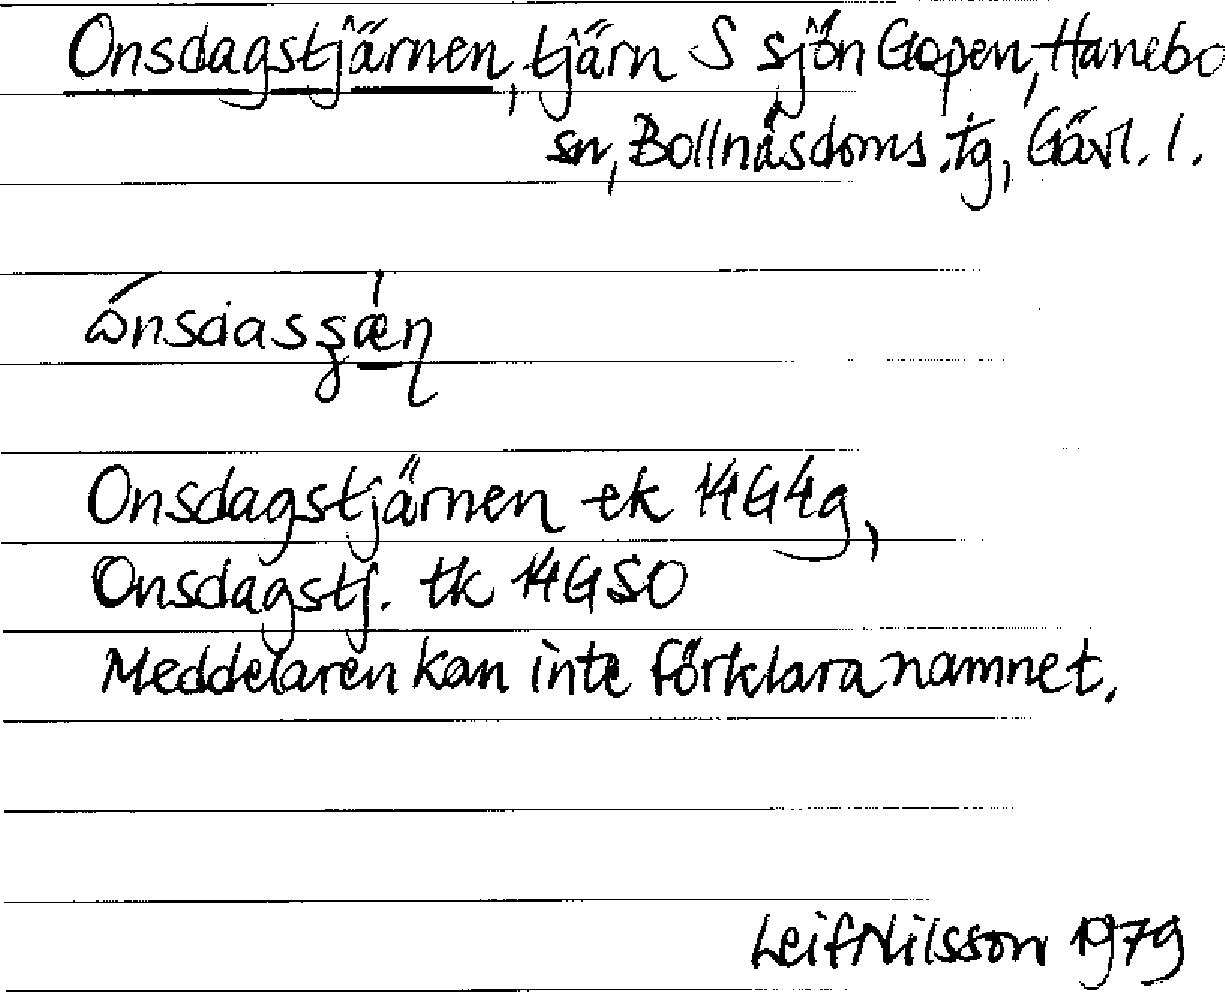 Onsdagstjärnen, tjärn S sjön Gopen, Hanebo
sn, Bollnäs doms.tg, Gävl. l.
Onsdagstjärnen ek 14G4g,
Onsdagstj. tk 14GSO
Meddelaren kan inte förklara namnet.
Leif Nilsson 1979